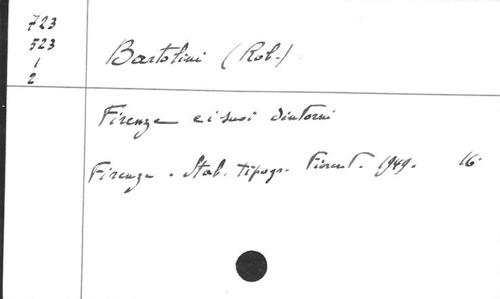 723
523
1
2
Bartolini (Rob.)
Firenze e i suoi dintorni
Firenze. Stab. tipogr. Fiorent. 1949. 16°